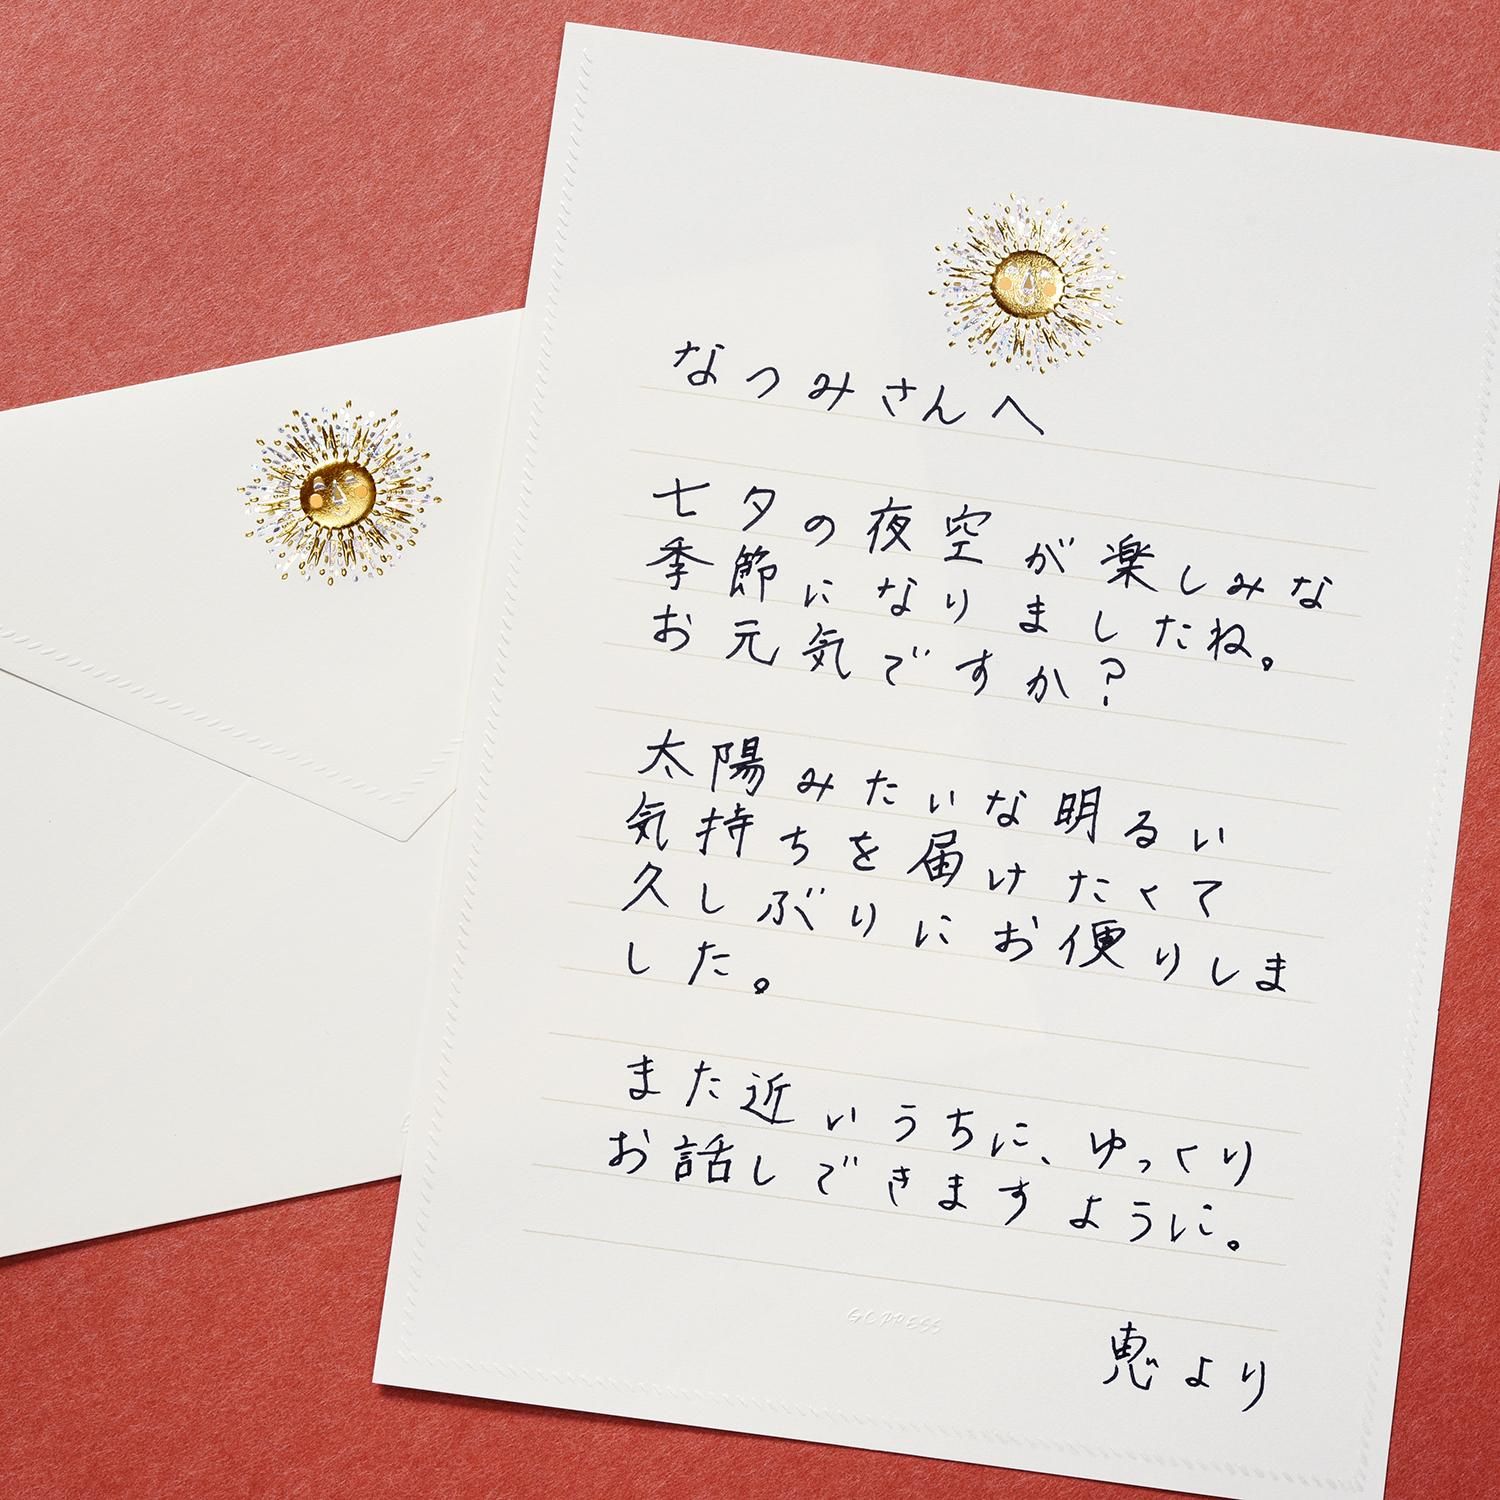 なつみさんへ
七夕の夜空が楽しみな
季節になりましたね。
お元気ですか?
太陽みたいな明るい
気持ちを届けたくて
久しぶりにお便りしま
した。
また近いうちに、ゆっくり
お話しできますように。
GCPRESS
恵より